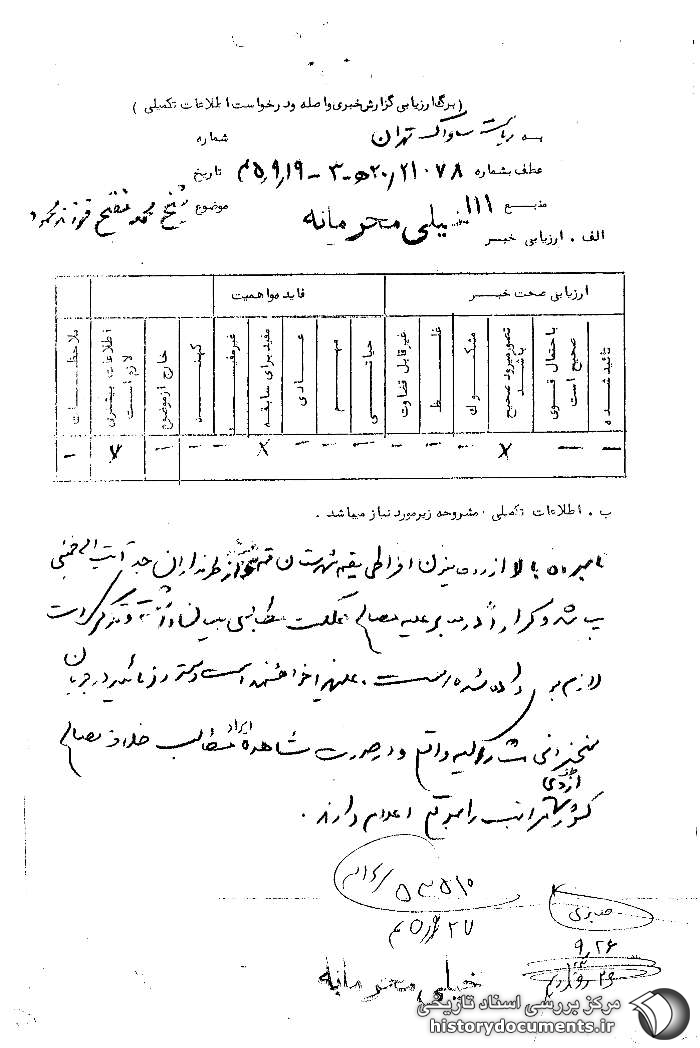 (برگ ارزیابی گزارش خبری واصله و درخواست اطلاعات تکمیلی)
به ریاست ساواک تهران
شماره
عطف بشماره ۲۰/۲۱۰۷۸ ه‍ ۳ - ۵،۹،۱۹ م
تاریخ
منبع ۱۱۱
موضوع شیخ محمد مفتح فرزند محمود
خیلی محرمانه
الف . ارزیابی خبر
ارزیابی صحت خبر
فایده و اهمیت
تائید شده
باحتمال قوی صحیح است
تصور میرود صحیح باشد
مشکوک
غلط
غیرقابل قضاوت
حیاتی
مهم
عادی
مفید برای سابقه
غیرمفید
کهنه
خارج از موضوع
اطلاعات بیشتری لازم است
ملاحظات
— — x — — — — — — x — — — x —
ب . اطلاعات تکمیلی مشروحه زیر مورد نیاز میباشد .
نامبرده بالا از روحانیون افراطی مقیم شهرستان قم و از طرفداران جدی آیت الله خمینی
میباشد و کراراً در منابر علیه مصالح مملکت مطالبی بیان داشته و تذکرات
لازم به وی داده شده است . علیهذا خواهشمند است دستور فرمائید در جریان
سخنرانی مشارالیه واقع و در صورت مشاهده ایراد مطالب خلاف مصالح
کشور از وی مراتب را بموقع اعلام دارند .
۵۳۵۱۰
۲۷
صابری
۹،۲۶
خیلی محرمانه
مرکز بررسی اسناد تاریخی
historydocuments.ir